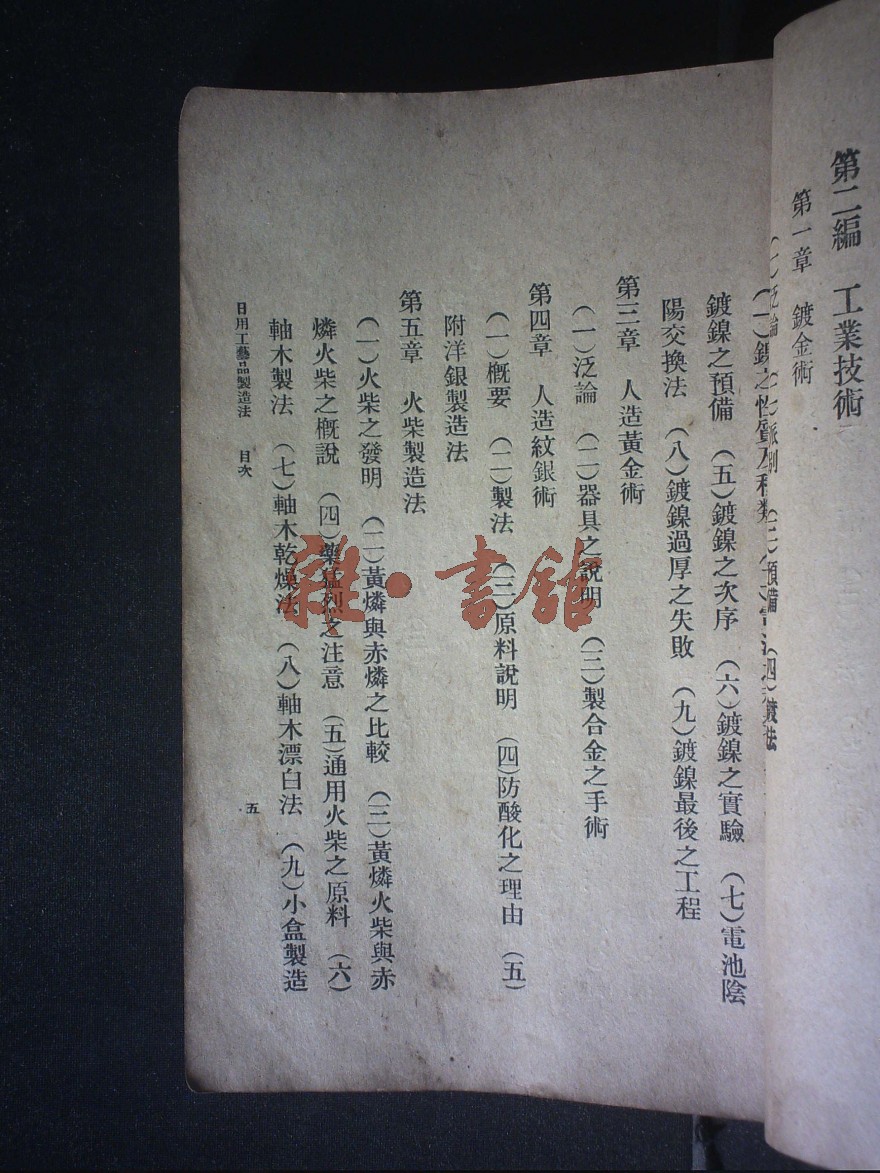 第二編　工業技術
第一章　鍍金術
(一)泛論　(二)派別　(三)預備　(四)鍍法
(一)鎳之性質及種類
鍍鎳之預備　(五)鍍鎳之次序　(六)鍍鎳之實驗　(七)電池陰
陽交換法　(八)鍍鎳過厚之失敗　(九)鍍鎳最後之工程
第三章　人造黃金術
(一)泛論　(二)器具之說明　(三)製合金之手術
第四章　人造紋銀術
(一)概要　(二)製法　(三)原料說明　(四)防酸化之理由　(五)
附洋銀製造法
第五章　火柴製造法
(一)火柴之發明　(二)黃燐與赤燐之比較　(三)黃燐火柴與赤
燐火柴之概說　(四)藥猛烈之注意　(五)通用火柴之原料　(六)
軸木製法　(七)軸木乾燥法　(八)軸木漂白法　(九)小盒製造
日用工藝品製造法　目次
五
雜·書館